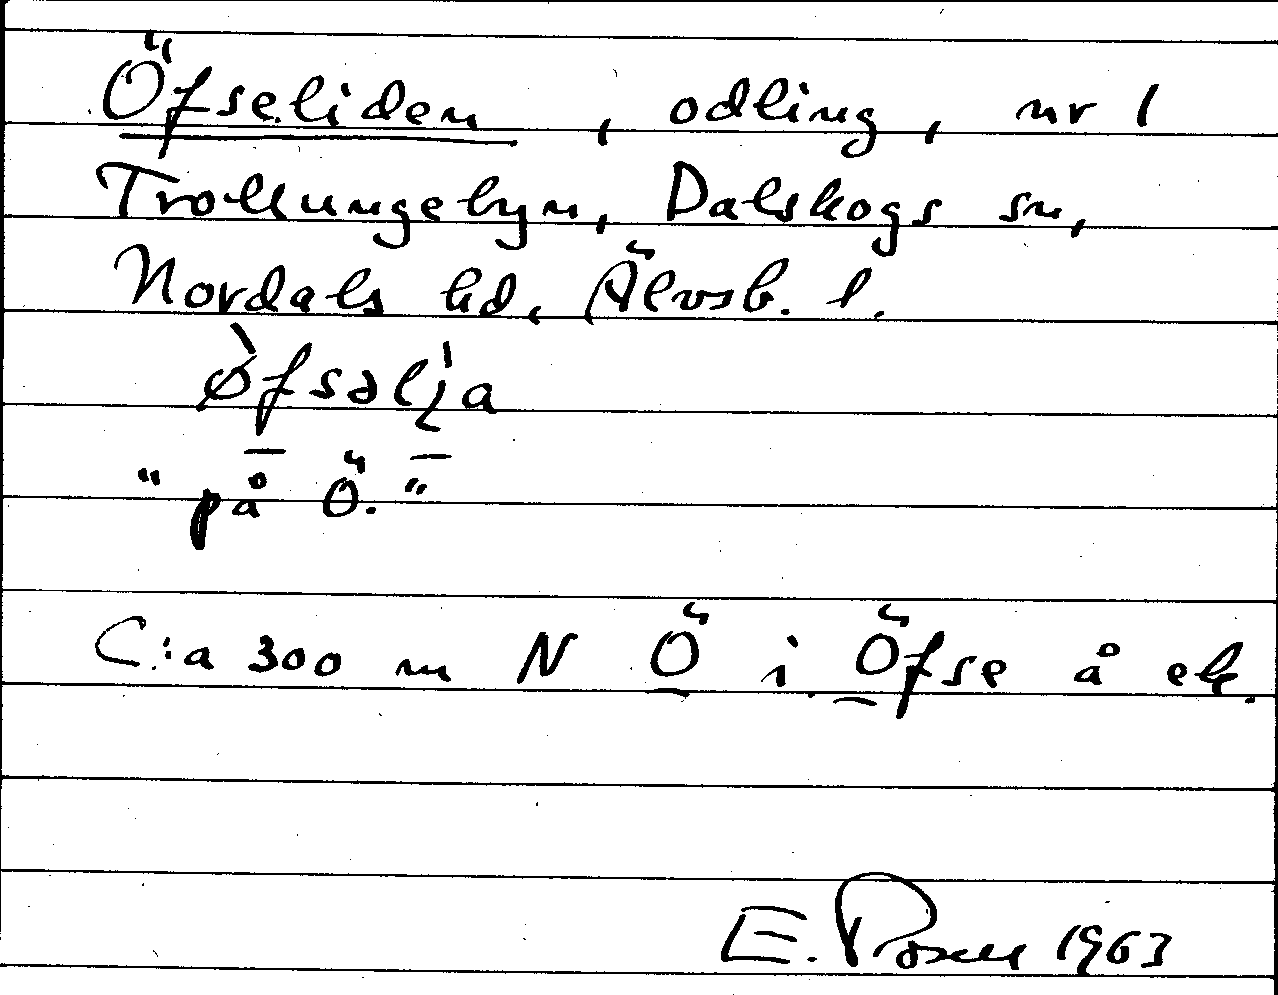 Öfseliden, odling, nr 1
Trollungebyn, Dalskogs sn,
Nordals hd, Älvsb. l.
ø̀fsəlı̨a
"på Ö."
C:a 300 m N Ö i. Öfse å ek.
E. 1963